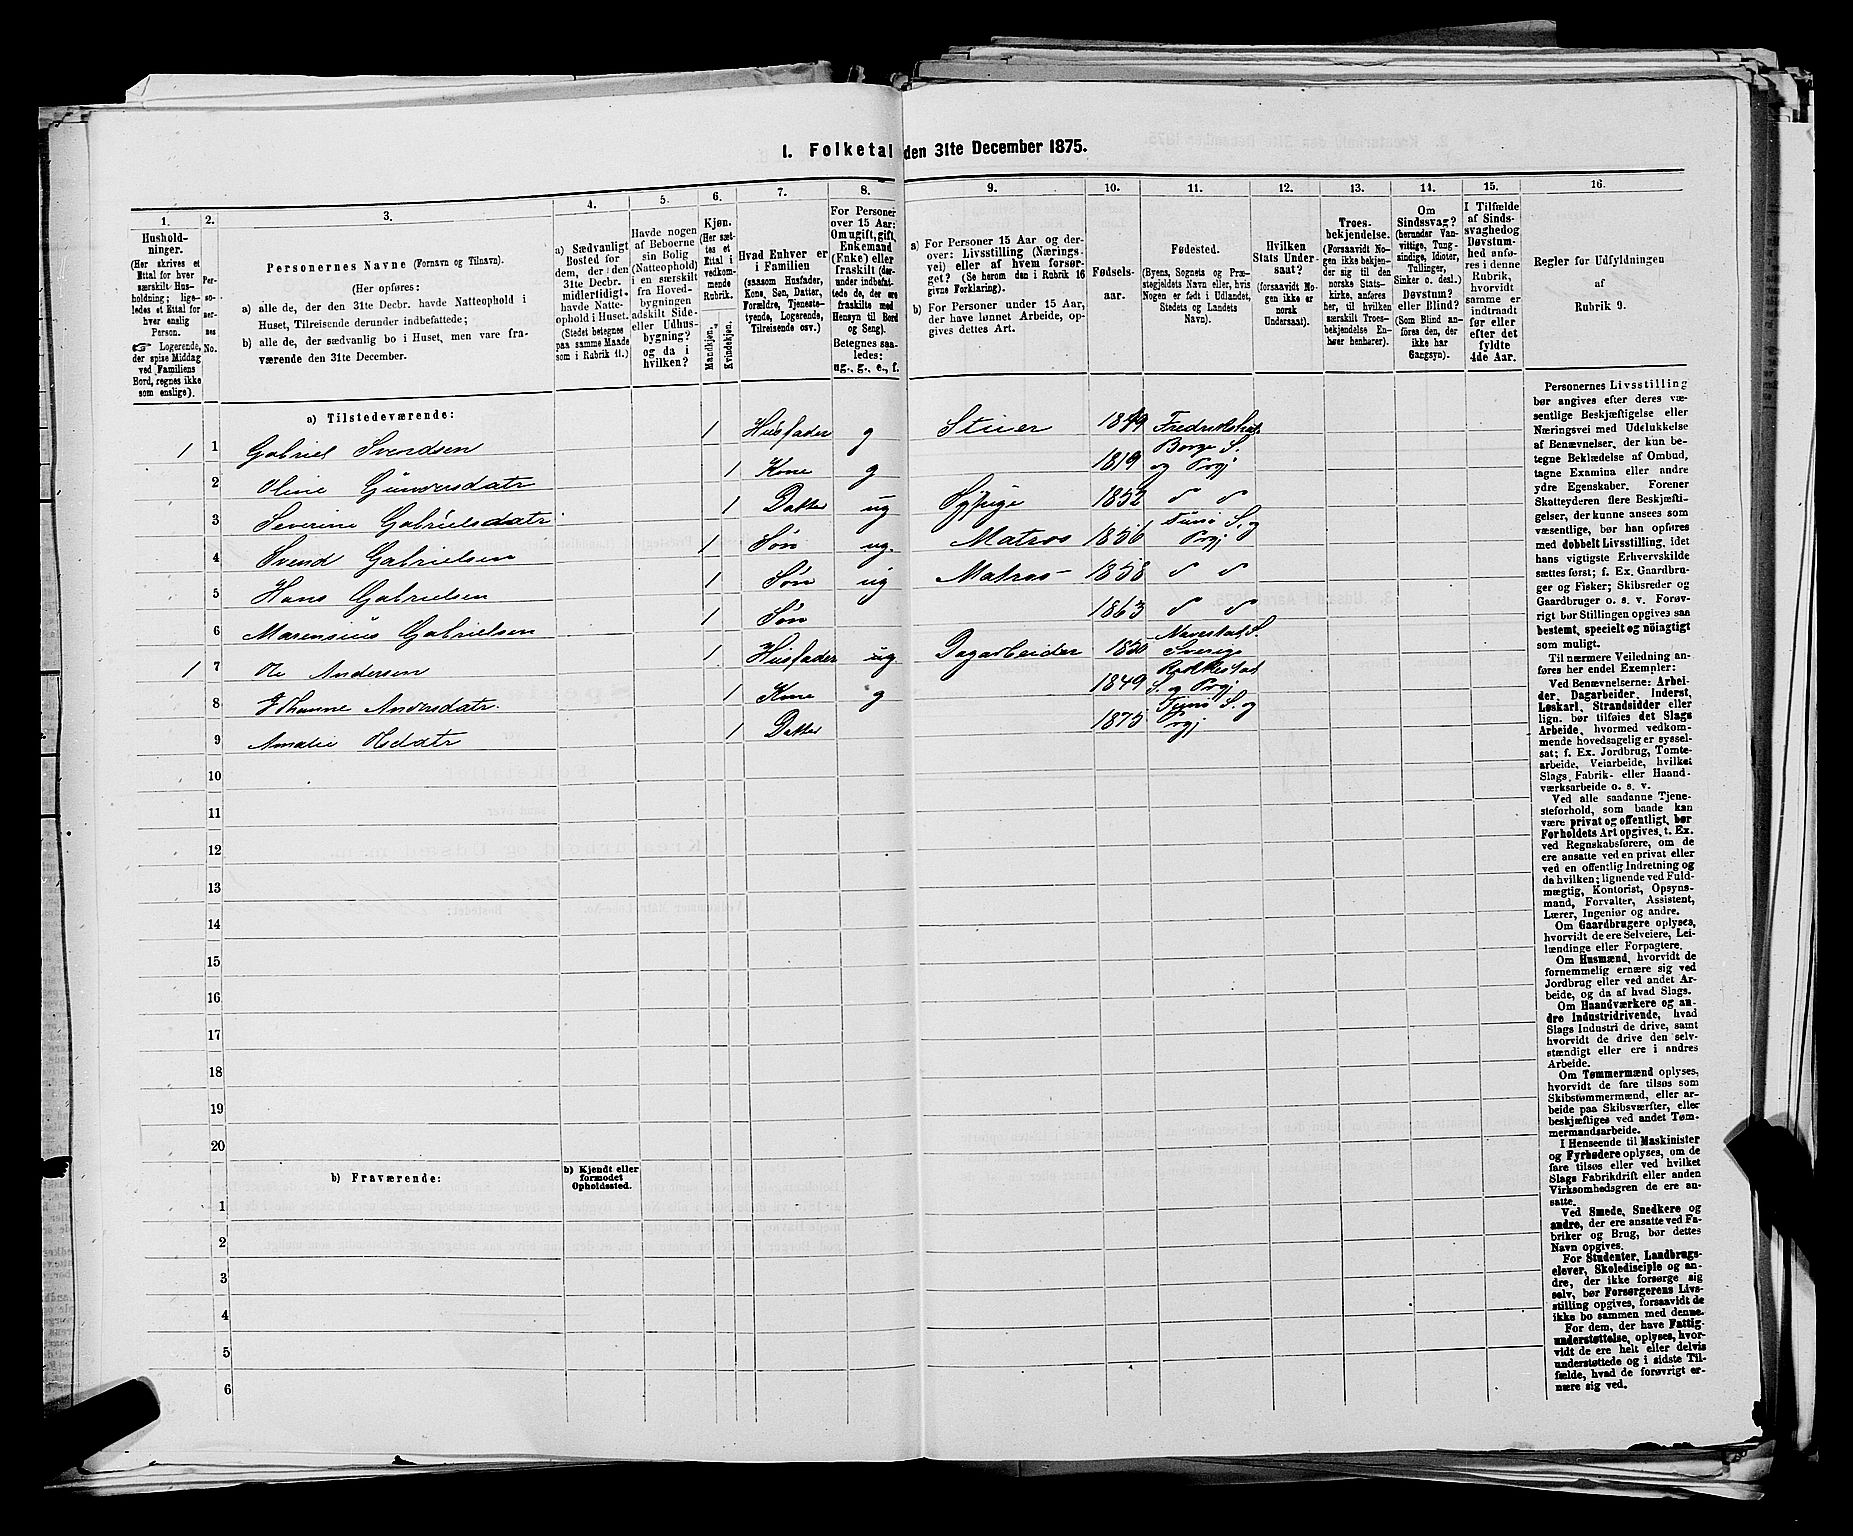 1. Folketal den 31te December 1875.
1. 2. 3. 4. 5. 6. 7. 8. 9. 10. 11. 12. 13. 14. 15. 16.
Hushold-
ninger.
(Her skrives et
Ettal for hver
særskilt Hus-
holdning; lige-
ledes et Ettal for
hver enslig
Person.
☞ Logerende,
der spise Middag
ved Familiens
Bord, regnes ikke
som enslige).
Per-
so-
ner-
nes
No.
Personernes Navne (Fornavn og Tilnavn).
(Her opføres:
a) alle de, der den 31te Decbr. havde Natteophold i
Huset, Tilreisende derunder indbefattede;
b) alle de, der sædvanlig bo i Huset, men vare fra-
værende den 31te December.
a) Sædvanligt
Bosted for
dem, der den
31te Decbr.
midlertidigt
havde Natte-
ophold i Huset.
(Stedet betegnes
paa samme Maade
som i Rubrik 11.)
Havde nogen
af Beboerne
sin Bolig
(Natteophold)
i en særskilt
fra Hoved-
bygningen
adskilt Side-
eller Udhus-
bygning?
og da i
hvilken?
Kjøn.
(Her sæt-
tes et
Ettal i
vedkom-
mende
Rubrik.
Mandkjøn.
Kvindekjøn.
Hvad Enhver er
i Familien
(saasom Husfader,
Kone, Søn, Datter,
Forældre, Tjeneste-
tyende, Logerende,
Tilreisende osv.)
For Personer
over 15 Aar:
Om ugift, gift,
Enkemand
(Enke) eller
fraskilt (der-
under indbefat-
tede de, der ere
fraskilte med
Hensyn til Bord
og Seng).
Betegnes saa-
ledes:
ug., g., e., f.
a) For Personer 15 Aar og der-
over: Livsstilling (Nærings-
vei) eller af hvem forsør-
get? (Se herom den i Rubrik 16
givne Forklaring).
b) For Personer under 15 Aar,
der have lønnet Arbeide, op-
gives dettes Art.
Fødsels-
aar.
Fødested.
(Byens, Sognets og Præ-
stegjeldets Navn eller, hvis
Nogen er født i Udlandet,
Stedets og Landets
Navn).
Hvilken
Stats Under-
saat?
(forsaavidt No-
gen ikke er
norsk
Undersaat).
Troes-
bekjendelse.
(Forsaavidt No-
gen ikke bekjen-
der sig til den
norske Stats-
kirke, anføres
her, til hvilken
særskilt Troes-
bekjendelse En-
hver henhører).
Om
Sindssvag?
(herunder Van-
vittige, Tung-
sindige, Idioter,
Tullinger,
Sinker o. desl.)
Døvstum?
eller Blind?
(Som Blind an-
føres den, der
ikke har
Gangsyn).
I Tilfælde
af Sinds-
svaghed og
Døvstum-
hed anfø-
res i denne
Rubrik,
hvorvidt
samme er
indtraadt
før eller
efter det
fyldte
4de Aar.
Regler for Udfyldningen
af
Rubrik 9.
a) Tilstedeværende:
1 1 Gabriel Svendsen 1 Husfader g Stuer 1819 Fredrikstad
2 Oline Gunersdatr 1 Kone g 1819 Borge S. og Prgj
3 Severine Gabrielsdatr 1 Datter ug Sypige 1852 〃 〃
4 Svend Gabrielsen 1 Søn ug. Matros 1856 Tunø S. og Prgj
5 Hans Gabrielsen 1 Søn ug Matros 1858 〃 〃
6 Marensius Gabrielsen 1 Søn 1863 〃 〃
1 7 Ole Andersen 1 Husfader ug. Dagarbeider 1850 Navestad S. Sverige
8 Andersdatr. 1 Kone g 1849 S. og Prgj
9 Amalie 1 Datter 1875 Tunø S. og Prgj
10
11
12
13
14
15
16
17
18
19
20
b) Fraværende:
b) Kjendt eller
formodet
Opholdssted.
1
2
3
4
5
6
Personernes Livsstilling
bør angives efter deres væ-
sentlige Beskjæftigelse eller
Næringsvei med Udelukkelse
af Benævnelser, der kun be-
tegne Beklædelse af Ombud,
tagne Examina eller andre
ydre Egenskaber. Forener
Skatteyderen flere Beskjæfti-
gelser, der kunne ansees som
væsentlige, bør han opføres
med dobbelt Livsstilling, idet
hans vigtigste Erhvervskilde
sættes først; f. Ex. Gaardbru-
ger og Fisker; Skibsreder og
Gaardbruger o. s. v. Forøv-
rigt bør Stillingen opgives saa
bestemt, specielt og nøiagtigt
som muligt.
Til nærmere Veiledning an-
føres her endel Exempler:
Ved Benævnelserne: Arbei-
der, Dagarbeider, Inderst,
Løskarl, Strandsidder eller
lign. bør tilføies det Slags
Arbeide, hvormed vedkom-
mende hovedsagelig er syssel-
sat; f. Ex. Jordbrug, Tomte-
arbeide, Veiarbeide, hvilket
Slags Fabrik- eller Haand-
værksarbeide o. s. v.
Ved alle saadanne Tjene-
steforhold, som baade kan
være privat og offentligt, bør
Forholdets Art opgives, t. Ex.
ved Regnskabsførere, om de
ere ansatte ved en privat eller
ved en offentlig Indretning og
da hvilken; lignende ved Fuld-
mægtig, Kontorist, Opsyns-
mand, Forvalter, Assistent,
Lærer, Ingeniør og andre.
Om Gaardbrugere oplyses,
hvorvidt de ere Selveiere, Lei-
lændinge eller Forpagtere.
Om Husmænd, hvorvidt de
fornemmelig ernære sig ved
Jordbrug eller ved andet Ar-
beide, og da af hvad Slags.
Om Haandværkere og an-
dre Industridrivende, hvad
Slags Industri de drive, samt
hvorvidt de drive den selv-
stændigt eller ere i andres
Arbeide.
Om Tømmermænd oplyses,
hvorvidt de fare tilsøs som
Skibstømmermænd, eller ar-
beide paa Skibsværfter, eller
beskjæftiges ved andet Tøm-
mermandsarbeide.
I Henseende til Maskinister
og Fyrbødere oplyses, om de
fare tilsøs eller ved hvilket
Slags Fabrikdrift eller anden
Virksomhedsgren de ere an-
satte.
Ved Smede, Snedkere og
andre, der ere ansatte ved Fa-
briker og Brug, bør dettes
Navn opgives.
For Studenter, Landbrugs-
elever, Skoledisciple og an-
dre, der ikke forsørge sig
selv, bør Forsørgerens Livs-
stilling opgives, forsaavidt de
ikke bo sammen med denne.
For dem, der have Fattig-
understøttelse, oplyses, hvor-
vidt de ere helt eller delvis
understøttede og i sidste Til-
fælde, hvad de forøvrigt er-
nære sig ved.